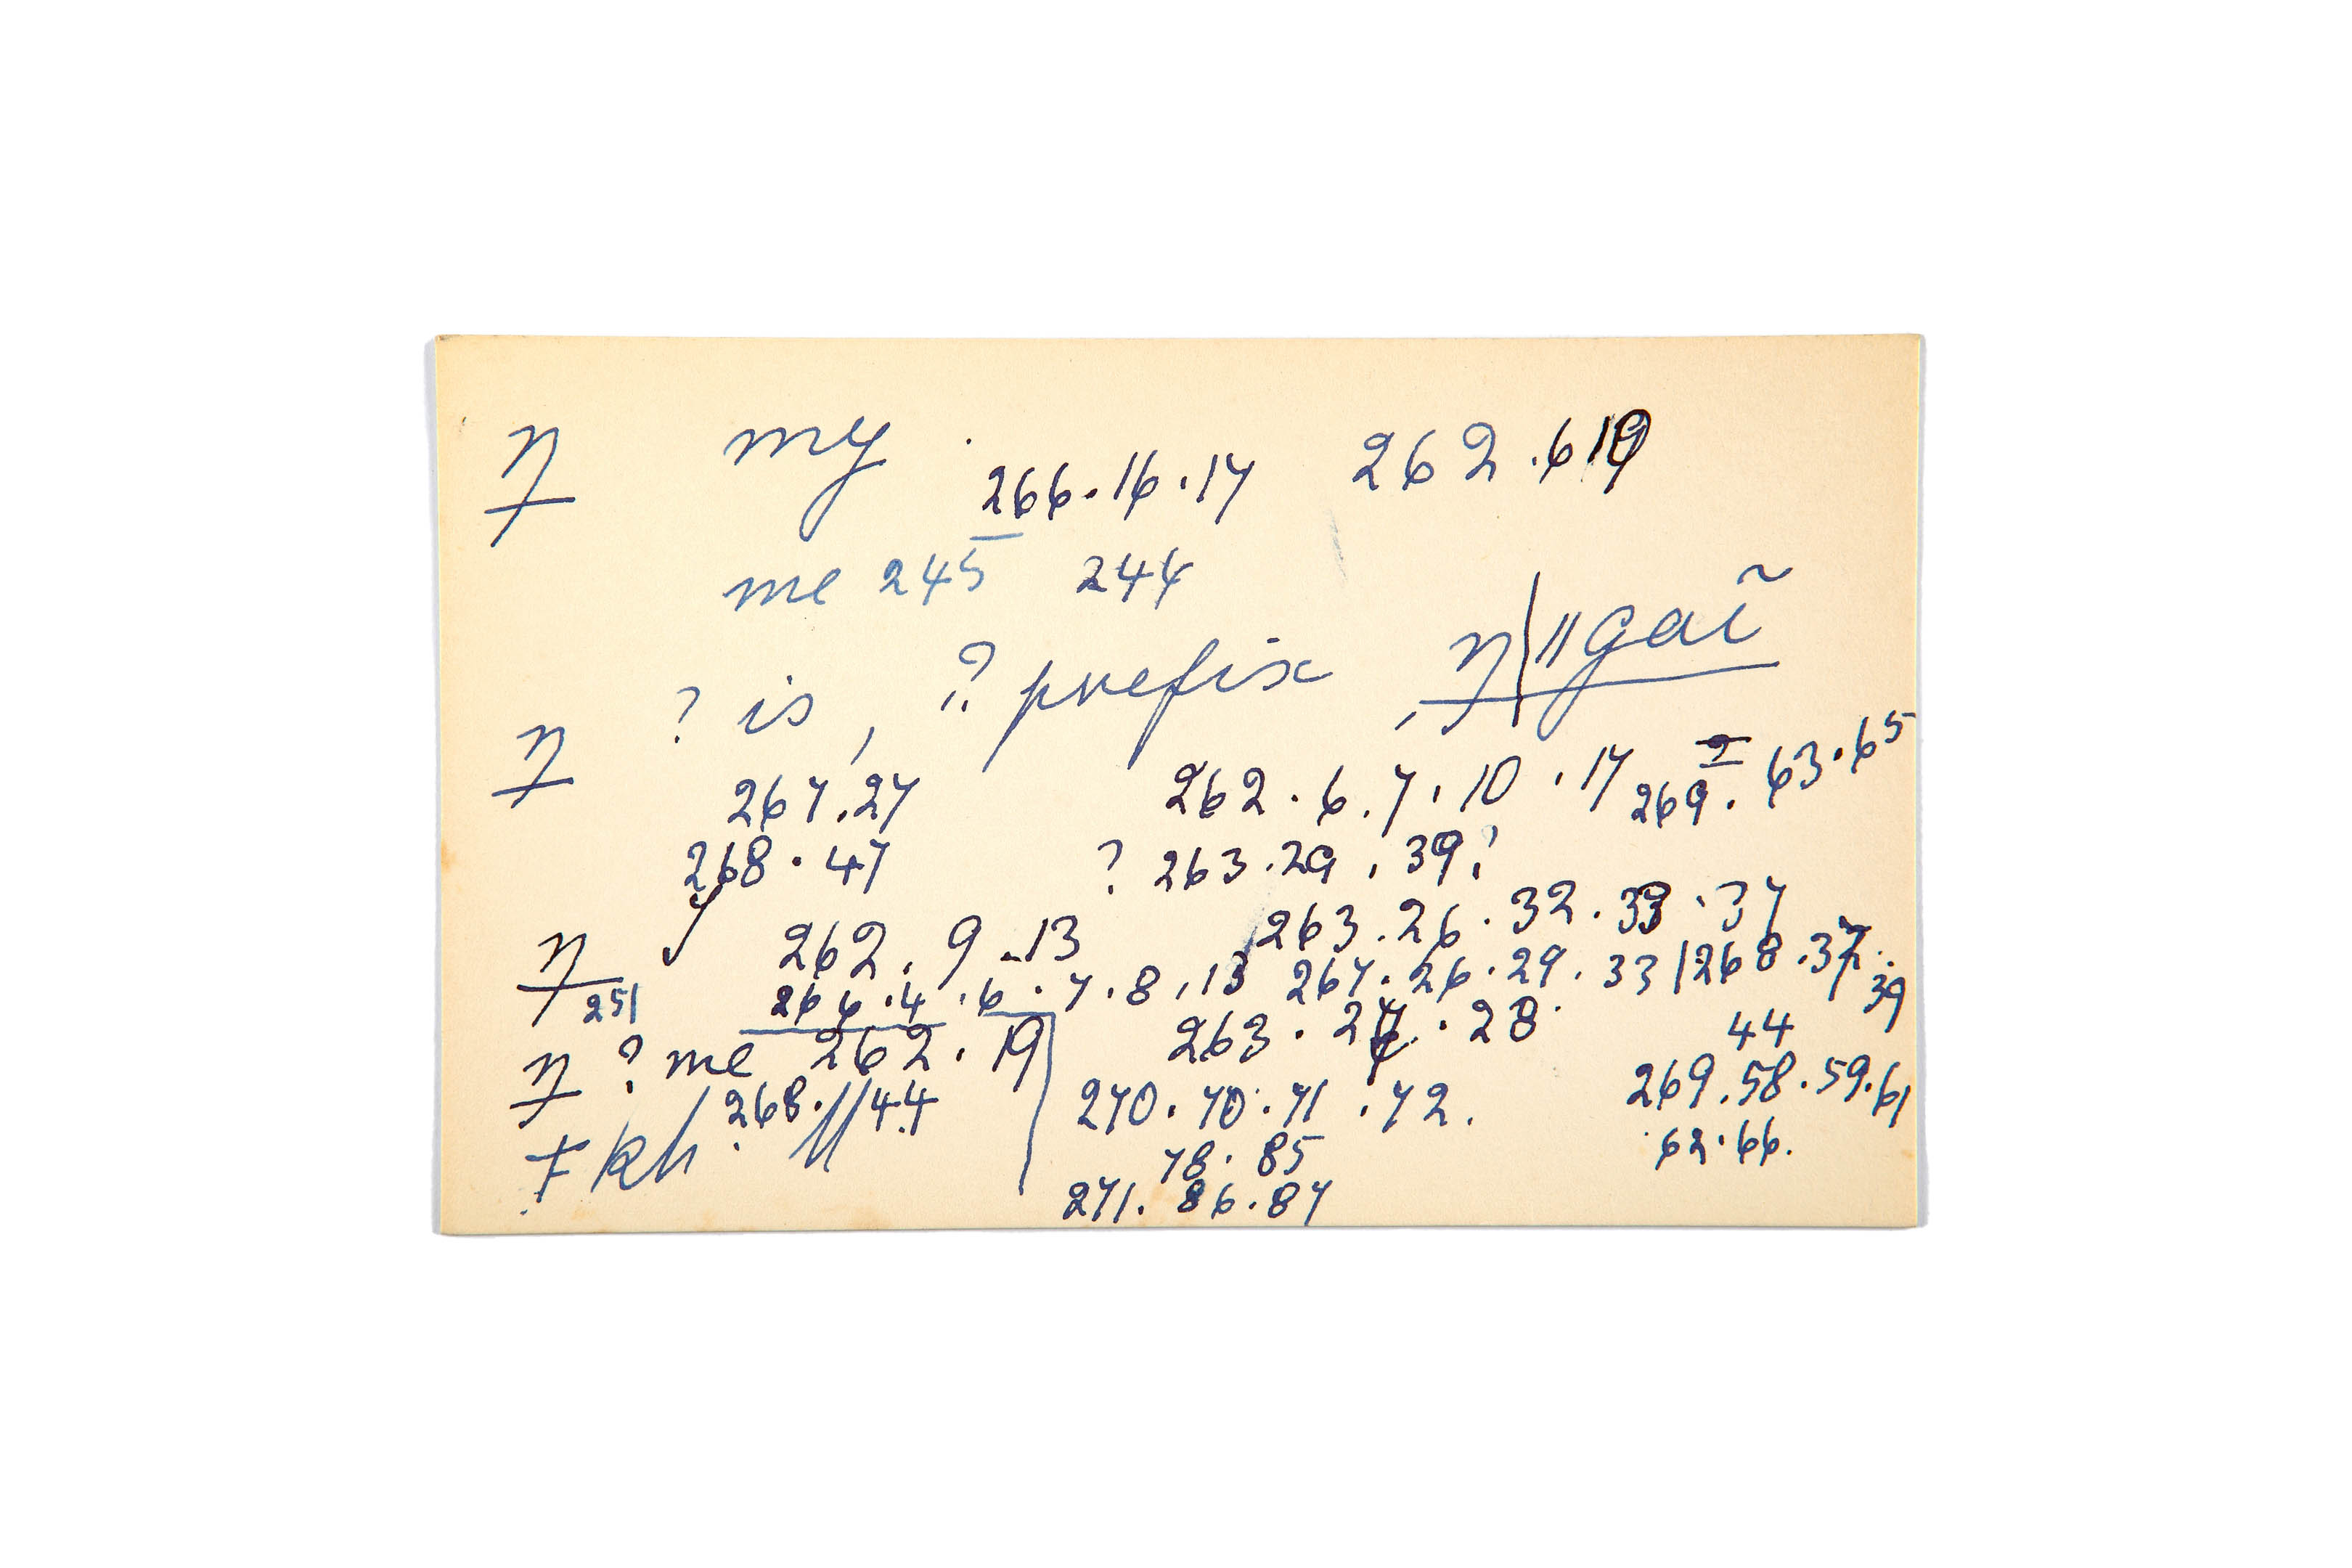 ŋ my . 262.6 19
266.16.17
me 245 244
ŋ ? is, ? prefix, ŋ|ǁgaĩ
267.27 262.6.7.10.17 269.63.65
268.47 ? 263.29.39?
ŋ y 262.9.13 263.26.32.33.37
251 266.4.6.7.8.13 267.26.29.33/268.37.39
ŋ ? me 262.19 263.27.28. 44
268.44 270.70.71.72. 269.58.59.61
ǂkh 78.85 62.66.
271.86.87